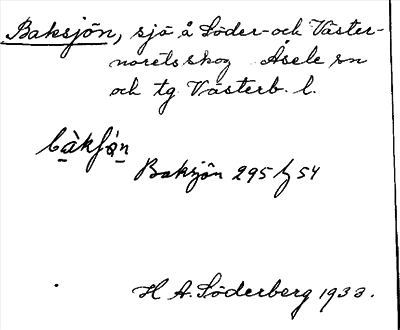 Baksjön, sjö å Söder- och Väster-
noretsskog Åsele sn
och tg Västerb. l.
Baksjön 295 54
H A. Söderberg 1933.